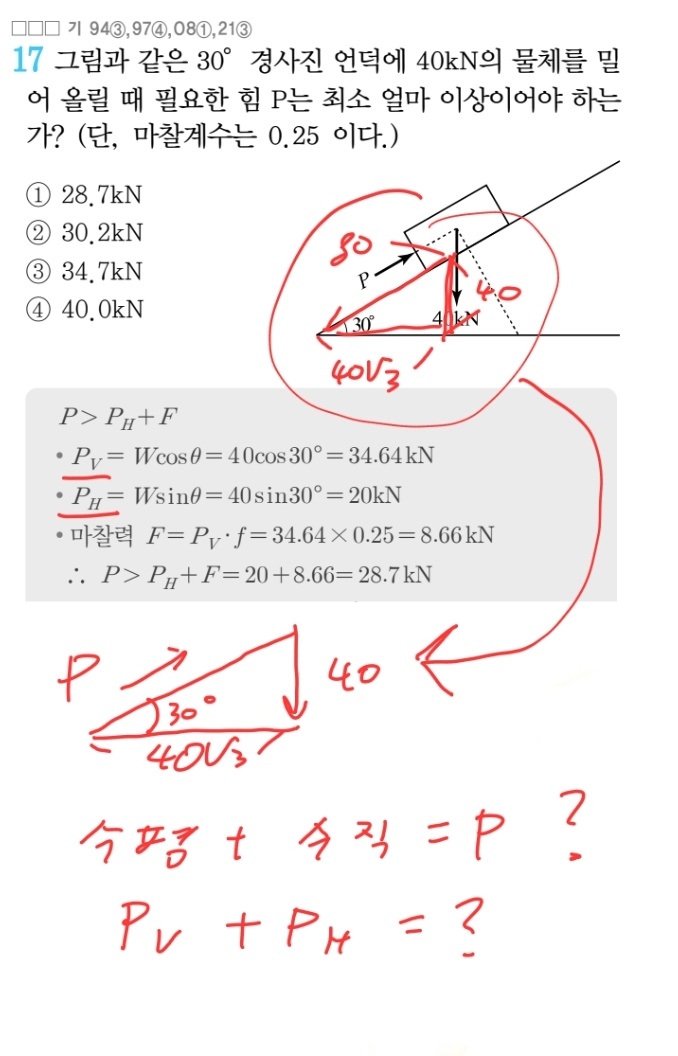 □□□ 기 94③,97④,08①,21③
17 그림과 같은 30° 경사진 언덕에 40kN의 물체를 밀
어 올릴 때 필요한 힘 P는 최소 얼마 이상이어야 하는
가? (단, 마찰계수는 0.25 이다.)
① 28.7kN
② 30.2kN
③ 34.7kN
④ 40.0kN
80
P
40
30°
40kN
40√3
P > P_H + F
• P_V = Wcosθ = 40cos30° = 34.64kN
• P_H = Wsinθ = 40sin30° = 20kN
• 마찰력 F = P_V · f = 34.64 × 0.25 = 8.66kN
∴ P > P_H + F = 20 + 8.66 = 28.7kN
P
40
30°
40√3
수평 + 수직 = P ?
P_V + P_H = ?